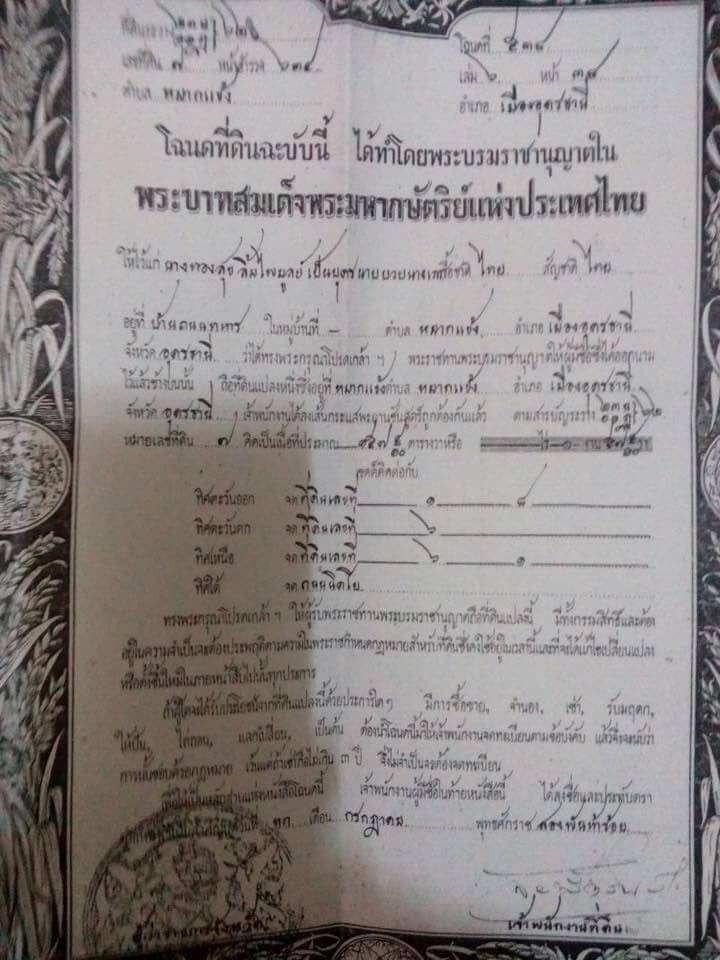 ที่ดินระวาง
โฉนดที่ ๕๓๘
เลขที่ดิน ๗ หน้าสำรวจ ๖๓๔
เล่ม ๖ หน้า ๓๘
ตำบล หมากแข้ง
อำเภอ เมืองอุดรธานี
โฉนดที่ดินฉะบับนี้ ได้ทำโดยพระบรมราชานุญาตใน
พระบาทสมเด็จพระมหากษัตริย์แห่งประเทศไทย
ให้ไว้แก่ นางทองสุข ลิ้มไพบูลย์ เป็นบุตรนาย เชื้อชาติ ไทย สัญชาติ ไทย
อยู่ที่ บ้านถนนทหาร ในหมู่บ้านที่ - ตำบล หมากแข้ง อำเภอ เมืองอุดรธานี
จังหวัด อุดรธานี ว่าได้ทรงพระกรุณาโปรดเกล้า ฯ พระราชทานพระบรมราชานุญาตให้ผู้มีชื่อซึ่งได้ออกนาม
ไว้แล้วข้างบนนั้น ถือที่ดินแปลงหนึ่งซึ่งอยู่ที่ หมากแข้ง ตำบล หมากแข้ง อำเภอ เมืองอุดรธานี
จังหวัด อุดรธานี เจ้าพนักงานได้ลงเส้นกระแสพะยานชันสูตร์ถูกต้องกันแล้ว ตามสารบัญระวาง
หมายเลขที่ดิน ๗ คิดเป็นเนื้อที่ประมาณ ตารางวาหรือ ไร่ ๑ งาน
เขตต์ติดต่อกับ
ทิศตะวันออก จด ที่ดินเลขที่ ๑ ๘
ทิศตะวันตก จด ที่ดินเลขที่ ๖
ทิศเหนือ จด ที่ดินเลขที่ ๖ ๑
ทิศใต้ จด ถนนนิตโย
ทรงพระกรุณาโปรดเกล้า ฯ ให้ผู้รับพระราชทานพระบรมราชานุญาตถือที่ดินแปลงนี้ มีทั้งกรรมสิทธิ์และต้อง
อยู่ในความจำเป็นจะต้องประพฤติตามความในพระราชกำหนดกฎหมายสำหรับที่ดินซึ่งคงใช้อยู่ในเวลานี้และที่จะได้แก้ไขเปลี่ยนแปลง
หรือตั้งขึ้นใหม่ในภายหน้าสืบไปนั้นทุกประการ
ถ้าผู้ใดจะได้รับประโยชน์จากที่ดินแปลงนี้ด้วยประการใด ๆ มีการซื้อขาย, จำนอง, เช่า, รับมฤดก,
ให้ปัน, ไถ่ถอน, แลกเปลี่ยน, เป็นต้น ต้องนำโฉนดนี้มาให้เจ้าพนักงานจดทะเบียนตามข้อบังคับ แล้วจึงจะนับว่า
การนั้นชอบด้วยกฎหมาย เว้นแต่ถ้าเช่าถือไม่เกิน ๓ ปี จึงไม่จำเป็นจะต้องจดทะเบียน
เพื่อให้เป็นหลักฐานแห่งหนังสือโฉนดนี้ เจ้าพนักงานผู้มีชื่อในท้ายหนังสือนี้ ได้ลงชื่อและประทับตรา
เดือน กรกฎาคม พุทธศักราช สองพันห้าร้อย
เจ้าพนักงานที่ดิน